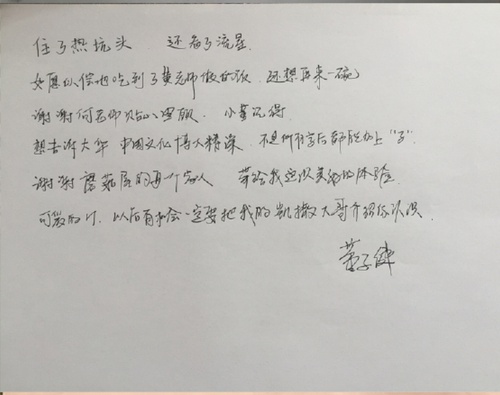 住了热炕头 还看了流星
如愿以偿地吃到了黄老师做的饭 还想再来一碗
谢谢何老师贴心照顾, 小董记得
想告诉大华 中国文化博大精深, 不是所有字后都能加上"子"
谢谢蘑菇屋的每一个家人 带给我这次美好的体验
可爱的, 以后有机会一定要把我的凯撒大哥介绍你认识.
董子健